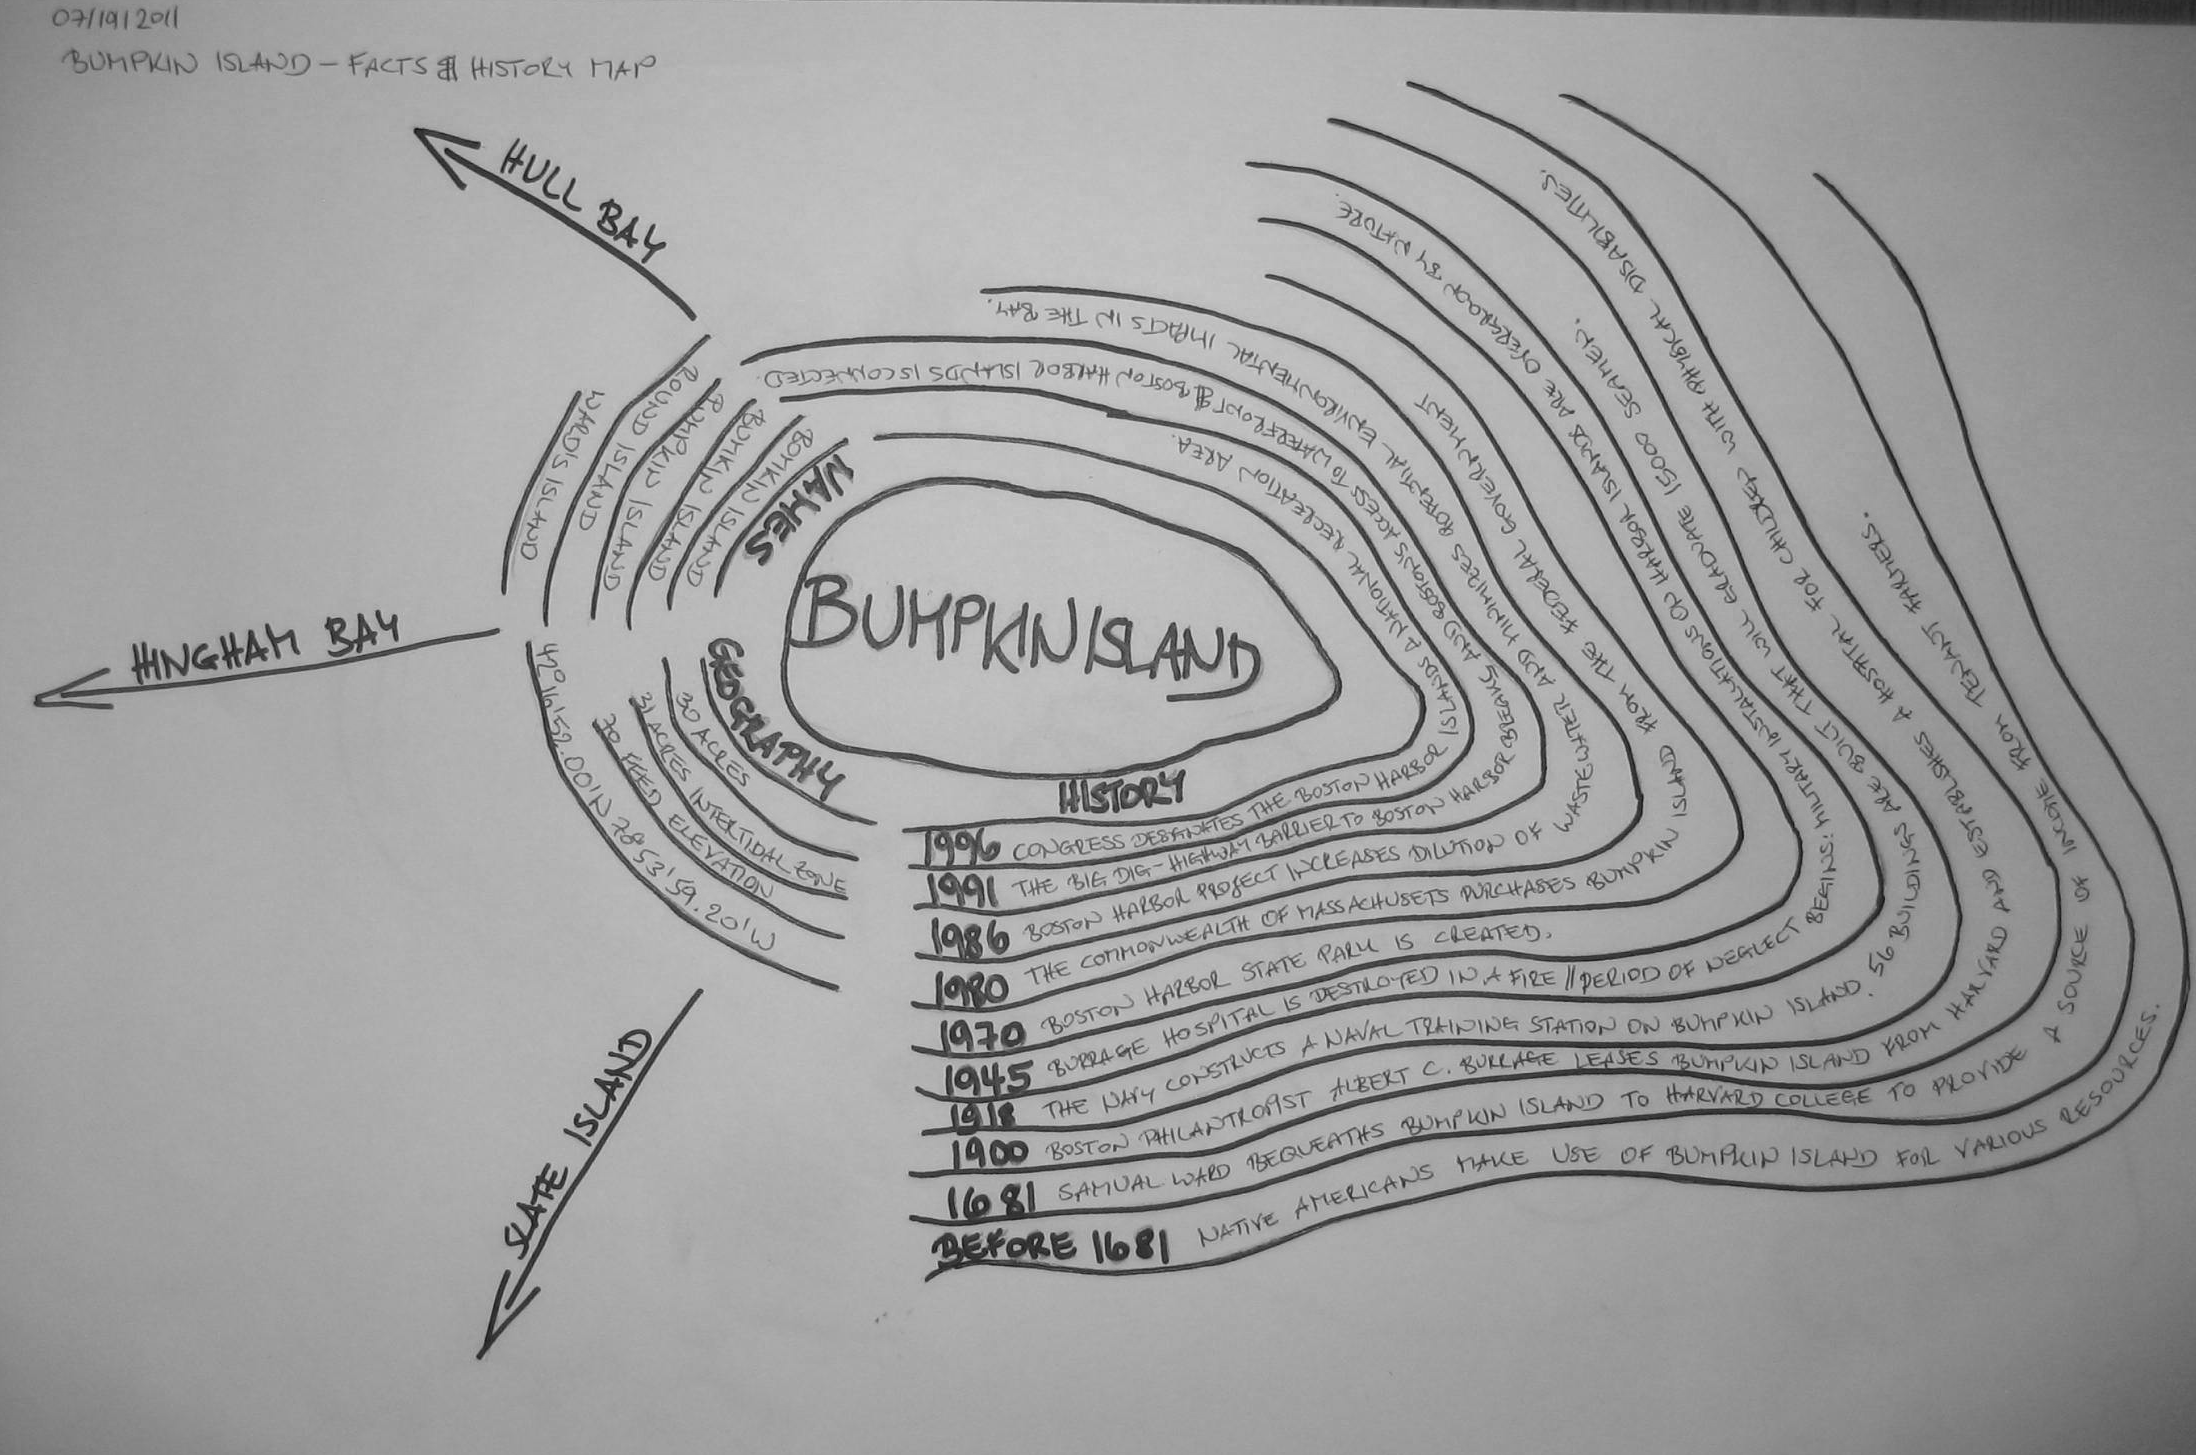 07/19/2011
BUMPKIN ISLAND – FACTS & HISTORY MAP
HULL BAY
HINGHAM BAY
SLATE ISLAND
WARD'S ISLAND
ROUND ISLAND
BUMPKIN ISLAND
BUMKIN ISLAND
BOMKIN ISLAND
NAMES
BUMPKIN ISLAND
GEOGRAPHY
30 ACRES
31 ACRES INTERTIDAL ZONE
70 FEED ELEVATION
42° 16' 52.00'' N 70° 53' 59.20'' W
HISTORY
1996 CONGRESS DESIGNATES THE BOSTON HARBOR ISLANDS A NATIONAL RECREATION AREA.
1991 THE BIG DIG – HIGHWAY BARRIER TO BOSTON HARBOR BREAKS AND BOSTON'S ACCESS TO WATERFRONT & BOSTON HARBOR ISLANDS IS CONNECTED.
1986 BOSTON HARBOR PROJECT INCREASES DILUTION OF WASTEWATER AND MINIMIZES POTENTIAL ENVIRONMENTAL IMPACTS IN THE BAY.
1980 THE COMMONWEALTH OF MASSACHUSETS PURCHASES BUMPKIN ISLAND FROM THE FEDERAL GOVERNMENT
1970 BOSTON HARBOR STATE PARK IS CREATED.
1945 BURRAGE HOSPITAL IS DESTROYED IN A FIRE // PERIOD OF NEGLECT BEGINS: MILITARY INSTALLATIONS ON HARBOR ISLANDS ARE OVERGROWN BY NATURE.
1918 THE NAVY CONSTRUCTS A NAVAL TRAINING STATION ON BUMPKIN ISLAND. 56 BUILDINGS ARE BUILT THAT WILL GRADUATE 15000 SEAMEN.
1900 BOSTON PHILANTROPIST ALBERT C. BURRAGE LEASES BUMPKIN ISLAND FROM HARVARD AND ESTABLISHES A HOSPITAL FOR CHILDREN WITH PHYSICAL DISABILITIES.
1681 SAMUAL WARD BEQUEATHS BUMPKIN ISLAND TO HARVARD COLLEGE TO PROVIDE A SOURCE OF INCOME FROM TENANT FARMERS.
BEFORE 1681 NATIVE AMERICANS MAKE USE OF BUMPKIN ISLAND FOR VARIOUS RESOURCES.